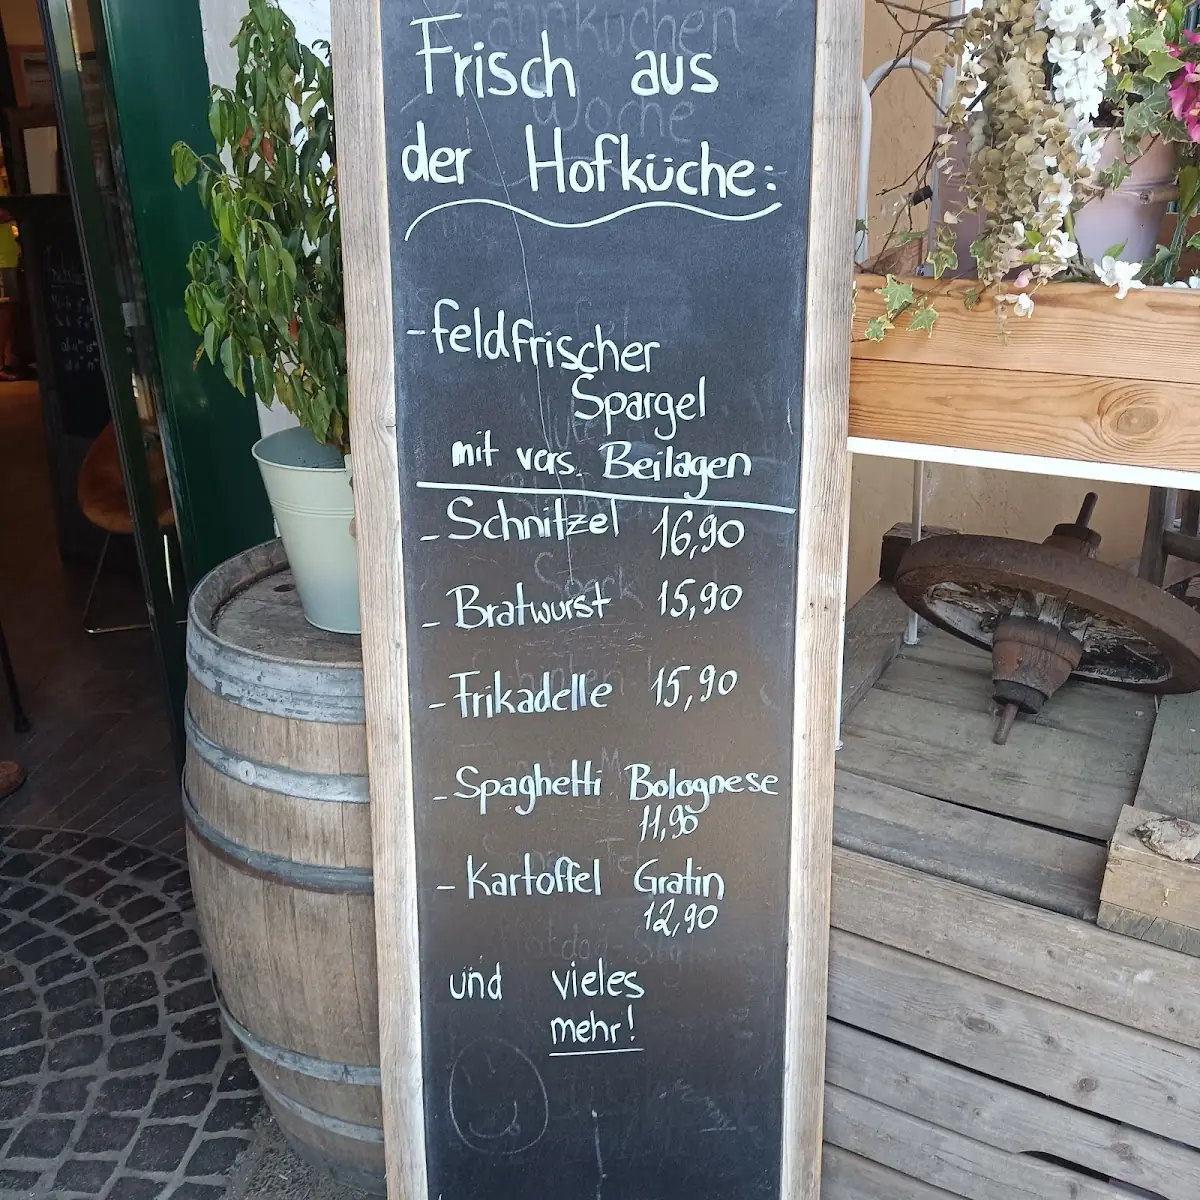 Frisch aus
der Hofküche:
- feldfrischer
Spargel
mit vers. Beilagen
- Schnitzel 16,90
- Bratwurst 15,90
- Frikadelle 15,90
- Spaghetti Bolognese
11,90
- Kartoffel Gratin
12,90
und vieles
mehr!